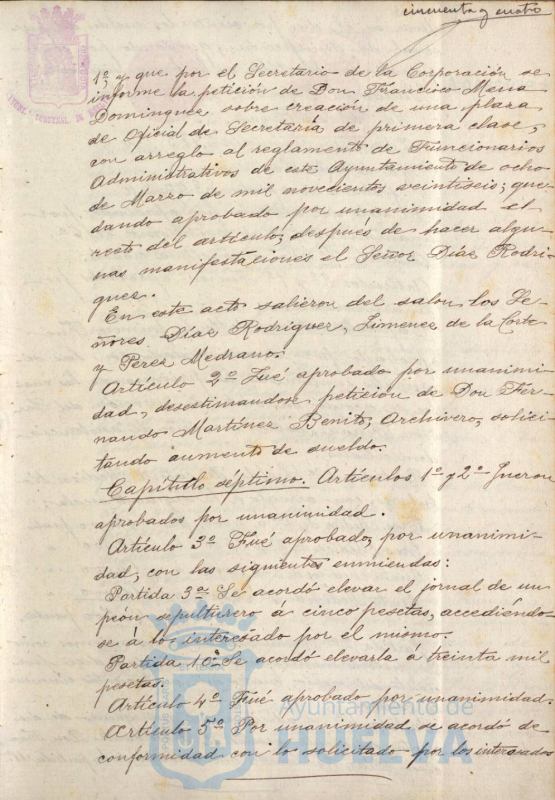 cincuenta y cuatro
1º, y que por el Secretario de la Corporación se
informe la petición de Don Francisco Mena
Dominguez sobre creación de una plaza
de Oficial de Secretaría de primera clase,
con arreglo al reglamento de Funcionarios
Administrativos de este Ayuntamiento de ocho
de Marzo de mil novecientos veintiseis; que
dando aprobado por unanimidad el
resto del artículo, después de hacer algu-
nas manifestaciones el Señor Díaz Rodri-
guez.
En este acto salieron del salon los Se-
ñores Díaz Rodriguez, Limenez de la Corte
y Perez Medrano.
Artículo 2º Fué aprobado por unanimi-
dad, desestimandose petición de Don Fer-
nando Martínez Benito, Archivero, solici-
tando aumento de sueldo.
Capítulo séptimo. Artículos 1º y 2º Fueron
aprobados por unanimidad.
Artículo 3º Fué aprobado, por unanimi-
dad, con las siguientes enmiendas:
Partida 3ª Se acordó elevar el jornal de un
peón sepulturero á cinco pesetas, accediéndo-
se á los interesado por el mismo.
Partida 10ª Se acordó elevarla á treinta mil
pesetas.
Artículo 4º Fué aprobado por unanimidad.
Artículo 5º Por unanimidad se acordó de
conformidad con lo solicitado por los interesados
Ayuntamiento de
HUELVA